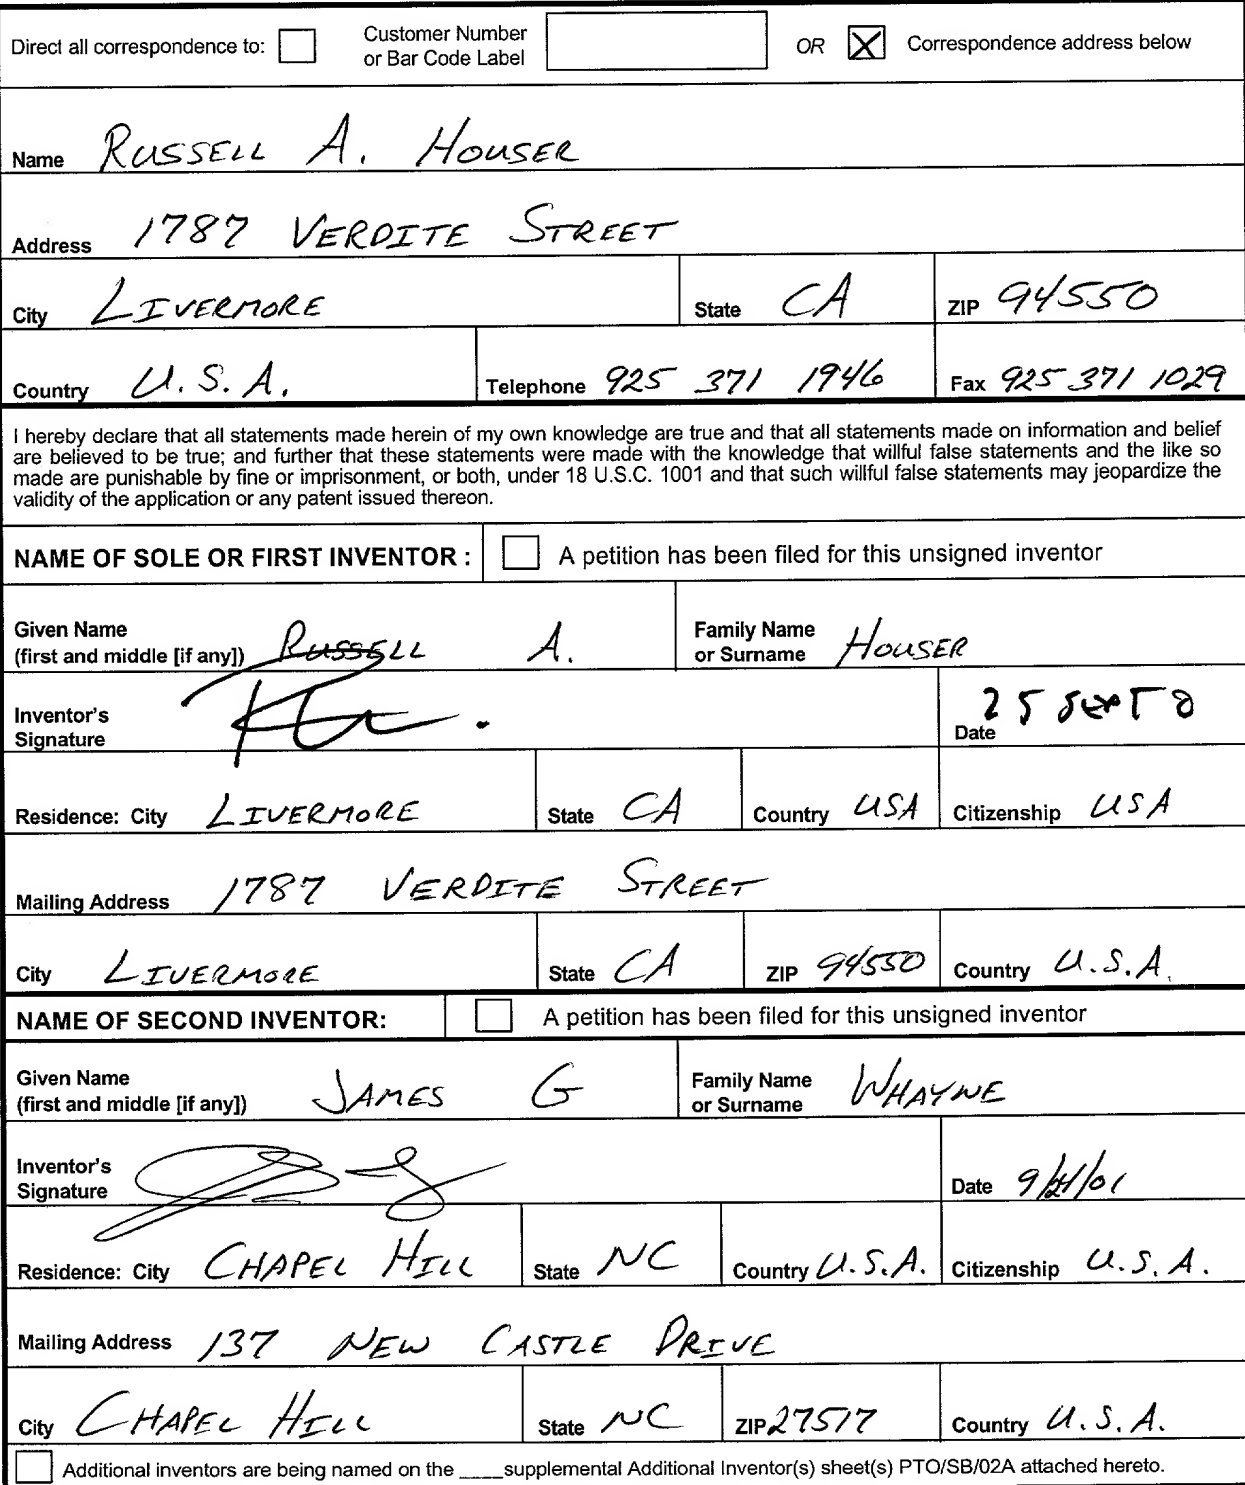 Direct all correspondence to: Customer Number or Bar Code Label OR Correspondence address below
Name RUSSELL A. HOUSER
Address 1787 VERDITE STREET
City LIVERMORE State CA ZIP 94550
Country U.S.A. Telephone 925 371 1946 Fax 925 371 1029
I hereby declare that all statements made herein of my own knowledge are true and that all statements made on information and belief
are believed to be true; and further that these statements were made with the knowledge that willful false statements and the like so
made are punishable by fine or imprisonment, or both, under 18 U.S.C. 1001 and that such willful false statements may jeopardize the
validity of the application or any patent issued thereon.
NAME OF SOLE OR FIRST INVENTOR : A petition has been filed for this unsigned inventor
Given Name (first and middle [if any]) RUSSELL A. Family Name or Surname HOUSER
Inventor's Signature Date 25
Residence: City LIVERMORE State CA Country USA Citizenship USA
Mailing Address 1787 VERDITE STREET
City LIVERMORE State CA ZIP 94550 Country U.S.A.
NAME OF SECOND INVENTOR: A petition has been filed for this unsigned inventor
Given Name (first and middle [if any]) JAMES G Family Name or Surname WHAYNE
Inventor's Signature Date
Residence: City CHAPEL HILL State NC Country U.S.A. Citizenship U.S.A.
Mailing Address 137 NEW CASTLE DRIVE
City CHAPEL HILL State NC ZIP 27517 Country U.S.A.
Additional inventors are being named on the ____supplemental Additional Inventor(s) sheet(s) PTO/SB/02A attached hereto.